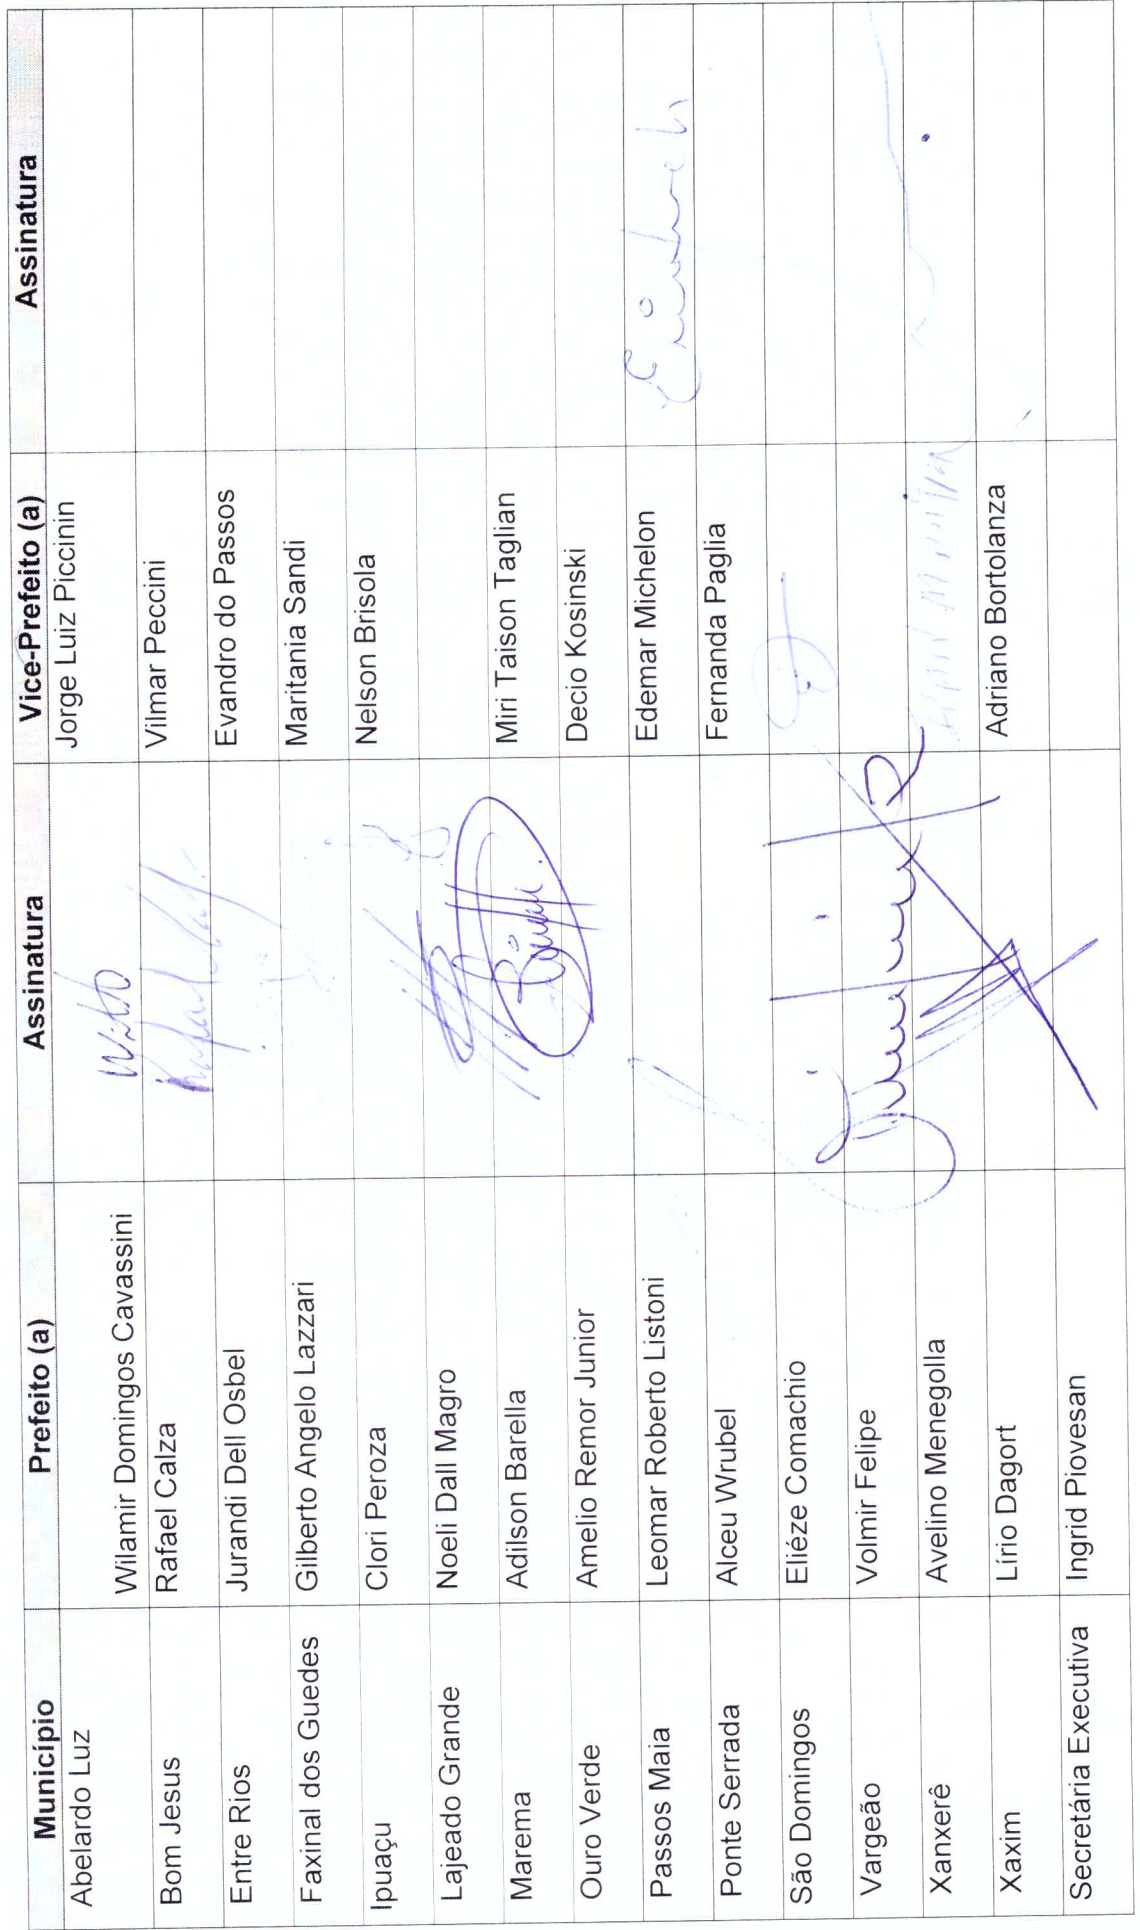 Município Prefeito (a) Assinatura Vice-Prefeito (a) Assinatura
Abelardo Luz Wilamir Domingos Cavassini Jorge Luiz Piccinin
Bom Jesus Rafael Calza Vilmar Peccini
Entre Rios Jurandi Dell Osbel Evandro do Passos
Faxinal dos Guedes Gilberto Angelo Lazzari Maritania Sandi
Ipuaçu Clori Peroza Nelson Brisola
Lajeado Grande Noeli Dall Magro
Marema Adilson Barella Miri Taison Taglian
Ouro Verde Amelio Remor Junior Decio Kosinski
Passos Maia Leomar Roberto Listoni Edemar Michelon
Ponte Serrada Alceu Wrubel Fernanda Paglia
São Domingos Eliéze Comachio
Vargeão Volmir Felipe
Xanxerê Avelino Menegolla
Xaxim Lírio Dagort Adriano Bortolanza
Secretária Executiva Ingrid Piovesan